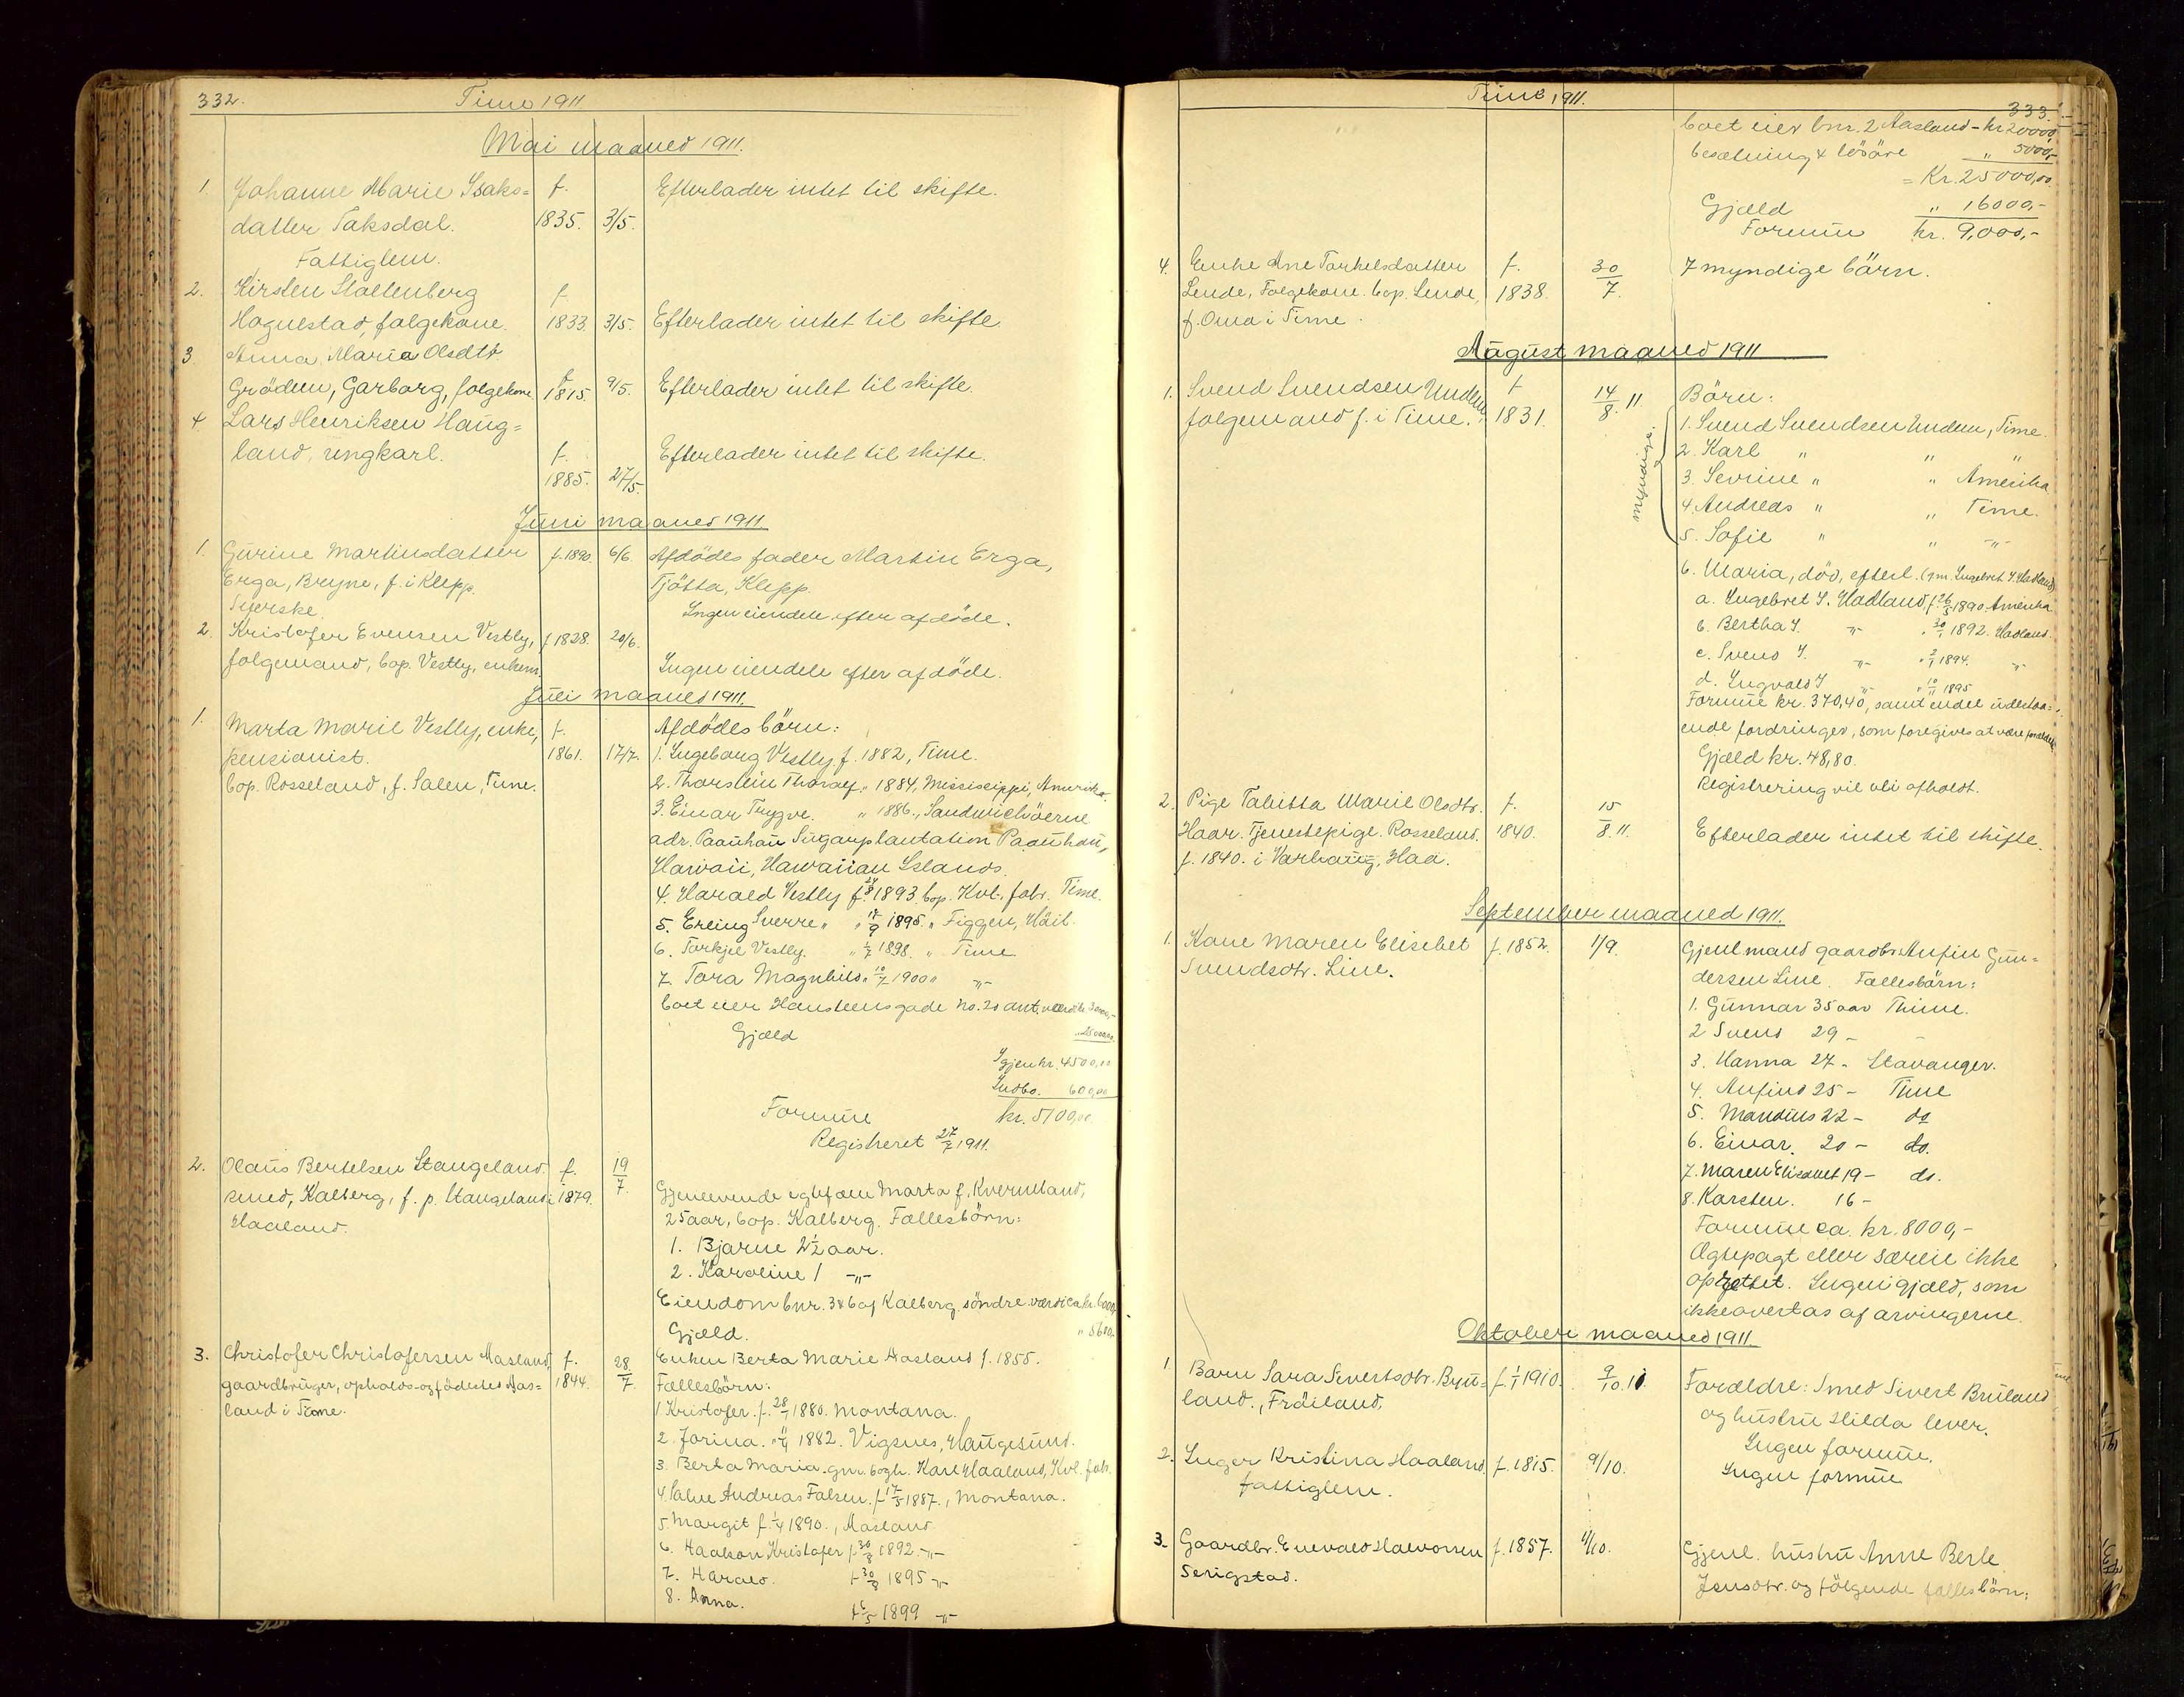 332.
Time 1911.
Mai maaned 1911.
1. Johanne Marie Isaks= f. Efterlader intet til skifte.
datter Taksdal. 1835. 3/5.
Fattiglem.
2. Kirsten Stallenberg f.
Hognestad, folgekone. 1833. 3/5. Efterlader intet til skifte.
3 Anna Maria Olsdtr
Grödem, Garborg, folgekone. f. 1815. 9/5. Efterlader intet til skifte.
4 Lars Henriksen Haug=
land, ungkarl. f. Efterlader intet til skifte.
1885. 27/5.
Juni maaned 1911.
1. Gurine Martinsdatter f. 1890. 6/6. Afdödes fader Martin Erga,
Erga, Bryne, f. i Klepp. Tjötta, Klepp.
Syerske Ingen eiendele efter afdöde.
2. Kristofer Evensen Vestly, f 1828. 20/6.
folgemand, bop. Vestly, enkem. Ingen eiendele efter afdöde.
Juli maaned 1911.
1. Marta Marie Vestly, enke, f. Afdödes börn:
pensionist. 1861. 17/7. 1. Ingeborg Vestly f. 1882, Time.
bop. Rosseland, f. Salen, Time. 2. Thorstein Thoralf „ 1884, Mississippi, Amerika.
3. Einar Trygve. „ 1886., Sandwichöerne
adr. Paauhau Sugarplantation Paauhau,
Hawaii, Hawaiian Islands.
4. Harald Vestly f. 24/8 1893 bop. Kvl. fabr. Time.
5. Erling Sverre „ „ 17/9 1895. „ Figgen, Hail.
6. Torkjel Vestly. „ 1/2 1898. „ Time
7. Tora Magnhild „ 10/7 1900 „ -„-
boet eier Hansteensgade No. 20 ant. værdi kr. 30000,-
Gjæld „ 25000.00
Igjen kr. 4500,00
Indbo. 600,00
Formue kr. 5100,00.
Registreret 27/7 1911.
2. Olaus Bertelsen Stangeland. f. 19/7.
smed, Kalberg, f. p. Stangeland i 1879. Gjenlevende egtefælle Marta f. Kverneland,
Haaland. 25 aar, bop. Kalberg. Fællesbörn:
1. Bjarne 2 1/2 aar.
2. Karoline 1 -„-
Eiendom bnr. 3 & 6 af Kalberg söndre værdi ca. kr. 6000,-
Gjæld. „ 5600,-
3. Christofer Christofersen Aasland, f. 28/7. Enken Berta Marie Aasland f. 1855.
gaardbruger, opholds- og födested Aas= 1844. Fællesbörn:
land i Time. 1 Kristofer. f. 28/1 1880. Montana.
2. Jorina. „ 11/4 1882. Vigsnes, Haugesund.
3. Berta Maria. gm. bogh. Karl Haaland, Kvl. fabr.
4. Salve Andreas Falsen. f. 17/5 1887., Montana.
5. Margit f. 1/4 1890., Aasland.
6. Haakon Kristofer f. 30/8 1892. -„-
7. Harald. f. 30/8 1895 -„-
8. Anna. f. 6/5 1899 -„-
Time 1911.
333.
boet eier bnr. 2 Aasland - kr 20000,
besætning & lösöre „ 5000,-
= Kr. 25000,00.
Gjæld „ 16000,-
Formue kr. 9,000,-
4. Enke Ane Torkelsdatter f. 30/7. 7 myndige börn.
Lende, Folgekone. bop. Lende, 1838.
f. Oma i Time.
August maaned 1911
1. Svend Svendsen Undem f. 14/8. 11. Börn:
folgemand f. i Time. 1831. 1. Svend Svendsen Undem, Time.
myndige.
2. Karl „ „ „
3. Sevrine „ „ Amerika
4. Andreas „ „ Time.
5. Sofie „ „ -„-
6. Maria, död, efterl. (gm. Ingebret S. Hadland)
a. Ingebret S. Hadland f. 26/5 1890. Amerika
b. Bertha S. -„- „ 30/1 1892. Hadland.
c. Svend S. -„- „ 2/1 1894. -„-
d. Ingvald S -„- „ 10/11 1895
Formue kr. 370,40, samt endel udestaa=
ende fordringer, som foregives at være forældede.
Gjæld kr. 48,80.
Registrering vil bli afholdt.
2. Pige Tabitta Marie Olsdtr. f. 15/8. 11.
Haar. Tjenestepige. Rosseland. 1840. Efterlader intet til skifte.
f. 1840. i Varhaug, Haa.
September maaned 1911.
1. Kone Maren Elisebet f. 1852. 1/9. Gjenl. mand gaardbr. Anfin Gun=
Svendsdtr. Line. dersen Line. Fællesbörn:
1. Gunnar 35 aar Thime.
2 Svend 29 - -
3. Hanna 27 - Stavanger.
4. Anfind 25 - Time
5. Mandius 22 - do
6. Einar. 20 - do.
7. Maren Elisabet 19 - do.
8. Karsten. 16 -
Formue ca. kr. 8000,-
Ægtepagt eller særeie ikke
oprettet. Ingen gjæld, som
ikke overtas af arvingerne.
Oktober maaned 1911.
1. Barn Sara Sivertsdtr. Bryn= f. 1/1 1910. 9/10. 11. Forældre: Smed Sivert Bruland
land., Fröiland. og hustru Hilda lever.
Ingen formue.
2. Inger Kristina Haaland f. 1815. 9/10. Ingen formue
fattiglem.
3. Gaardbr. Enevald Halvorsen f. 1857. 4/10. Gjenl. hustru Anne Berte
Serigstad. Jensdtr. og fölgende fællesbörn: